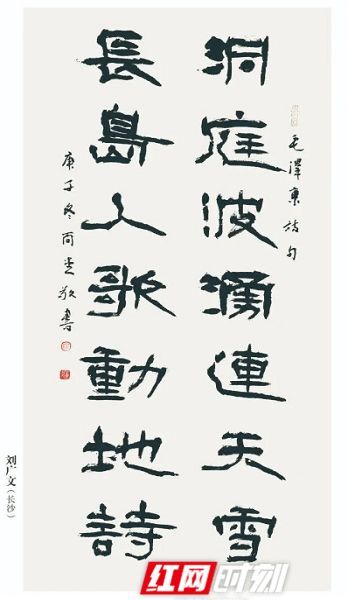 毛澤東詩句
洞庭波涌連天雪
長島人歌動地詩
庚子冬敬書
刘广文（长沙）
红网时刻